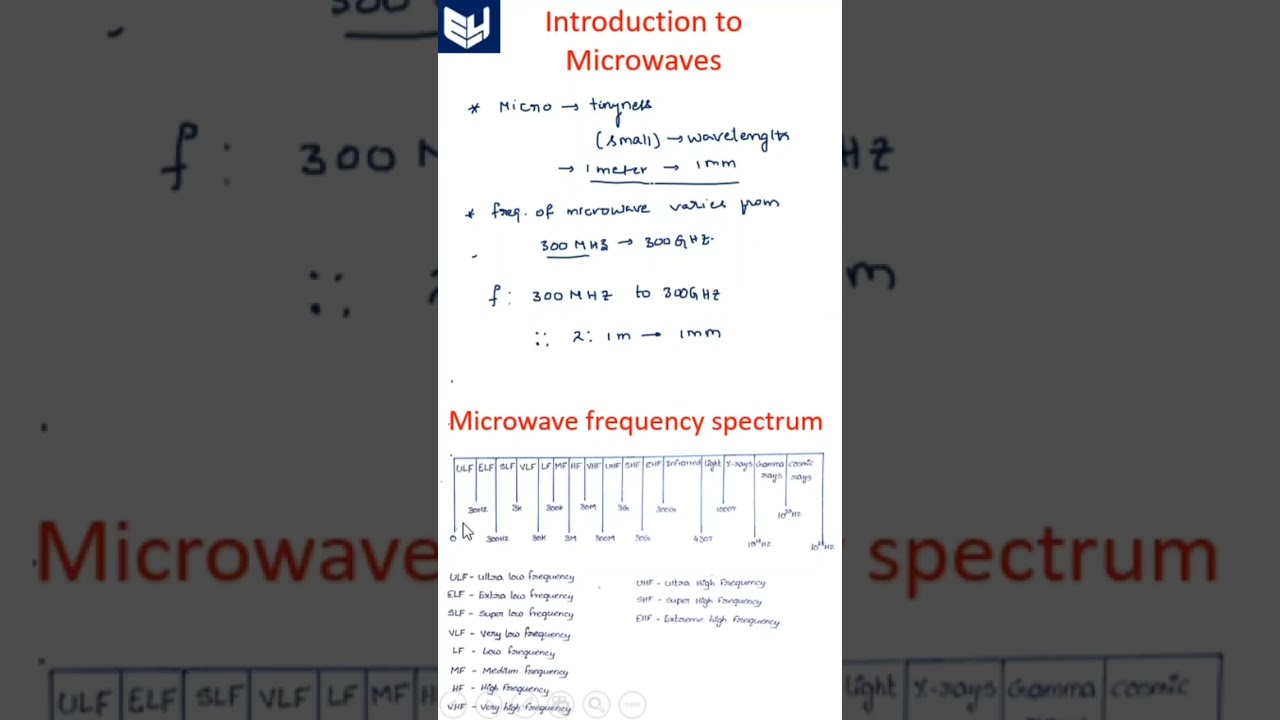 Introduction to
Microwaves
* Micro → tinyness
(small) → wavelength
→ 1 meter → 1mm
* freq. of microwave varies from
300 MHz → 300 GHz.
f: 300 MHz to 300GHz
∴ λ: 1m → 1mm
Microwave frequency spectrum
ULF ELF SLF VLF LF MF HF VHF UHF SHF EHF Infrared light X-rays Gamma rays cosmic rays
30Hz 3K 300K 30M 3G 300G 1000T
0 300Hz 30K 3M 300M 30G 430T
ULF - Ultra low frequency
ELF - Extra low frequency
SLF - Super low frequency
VLF - Very low frequency
LF - Low frequency
MF - Medium frequency
HF - High frequency
VHF - Very high frequency
UHF - Ultra High Frequency
SHF - Super High Frequency
EHF - Extreme high Frequency